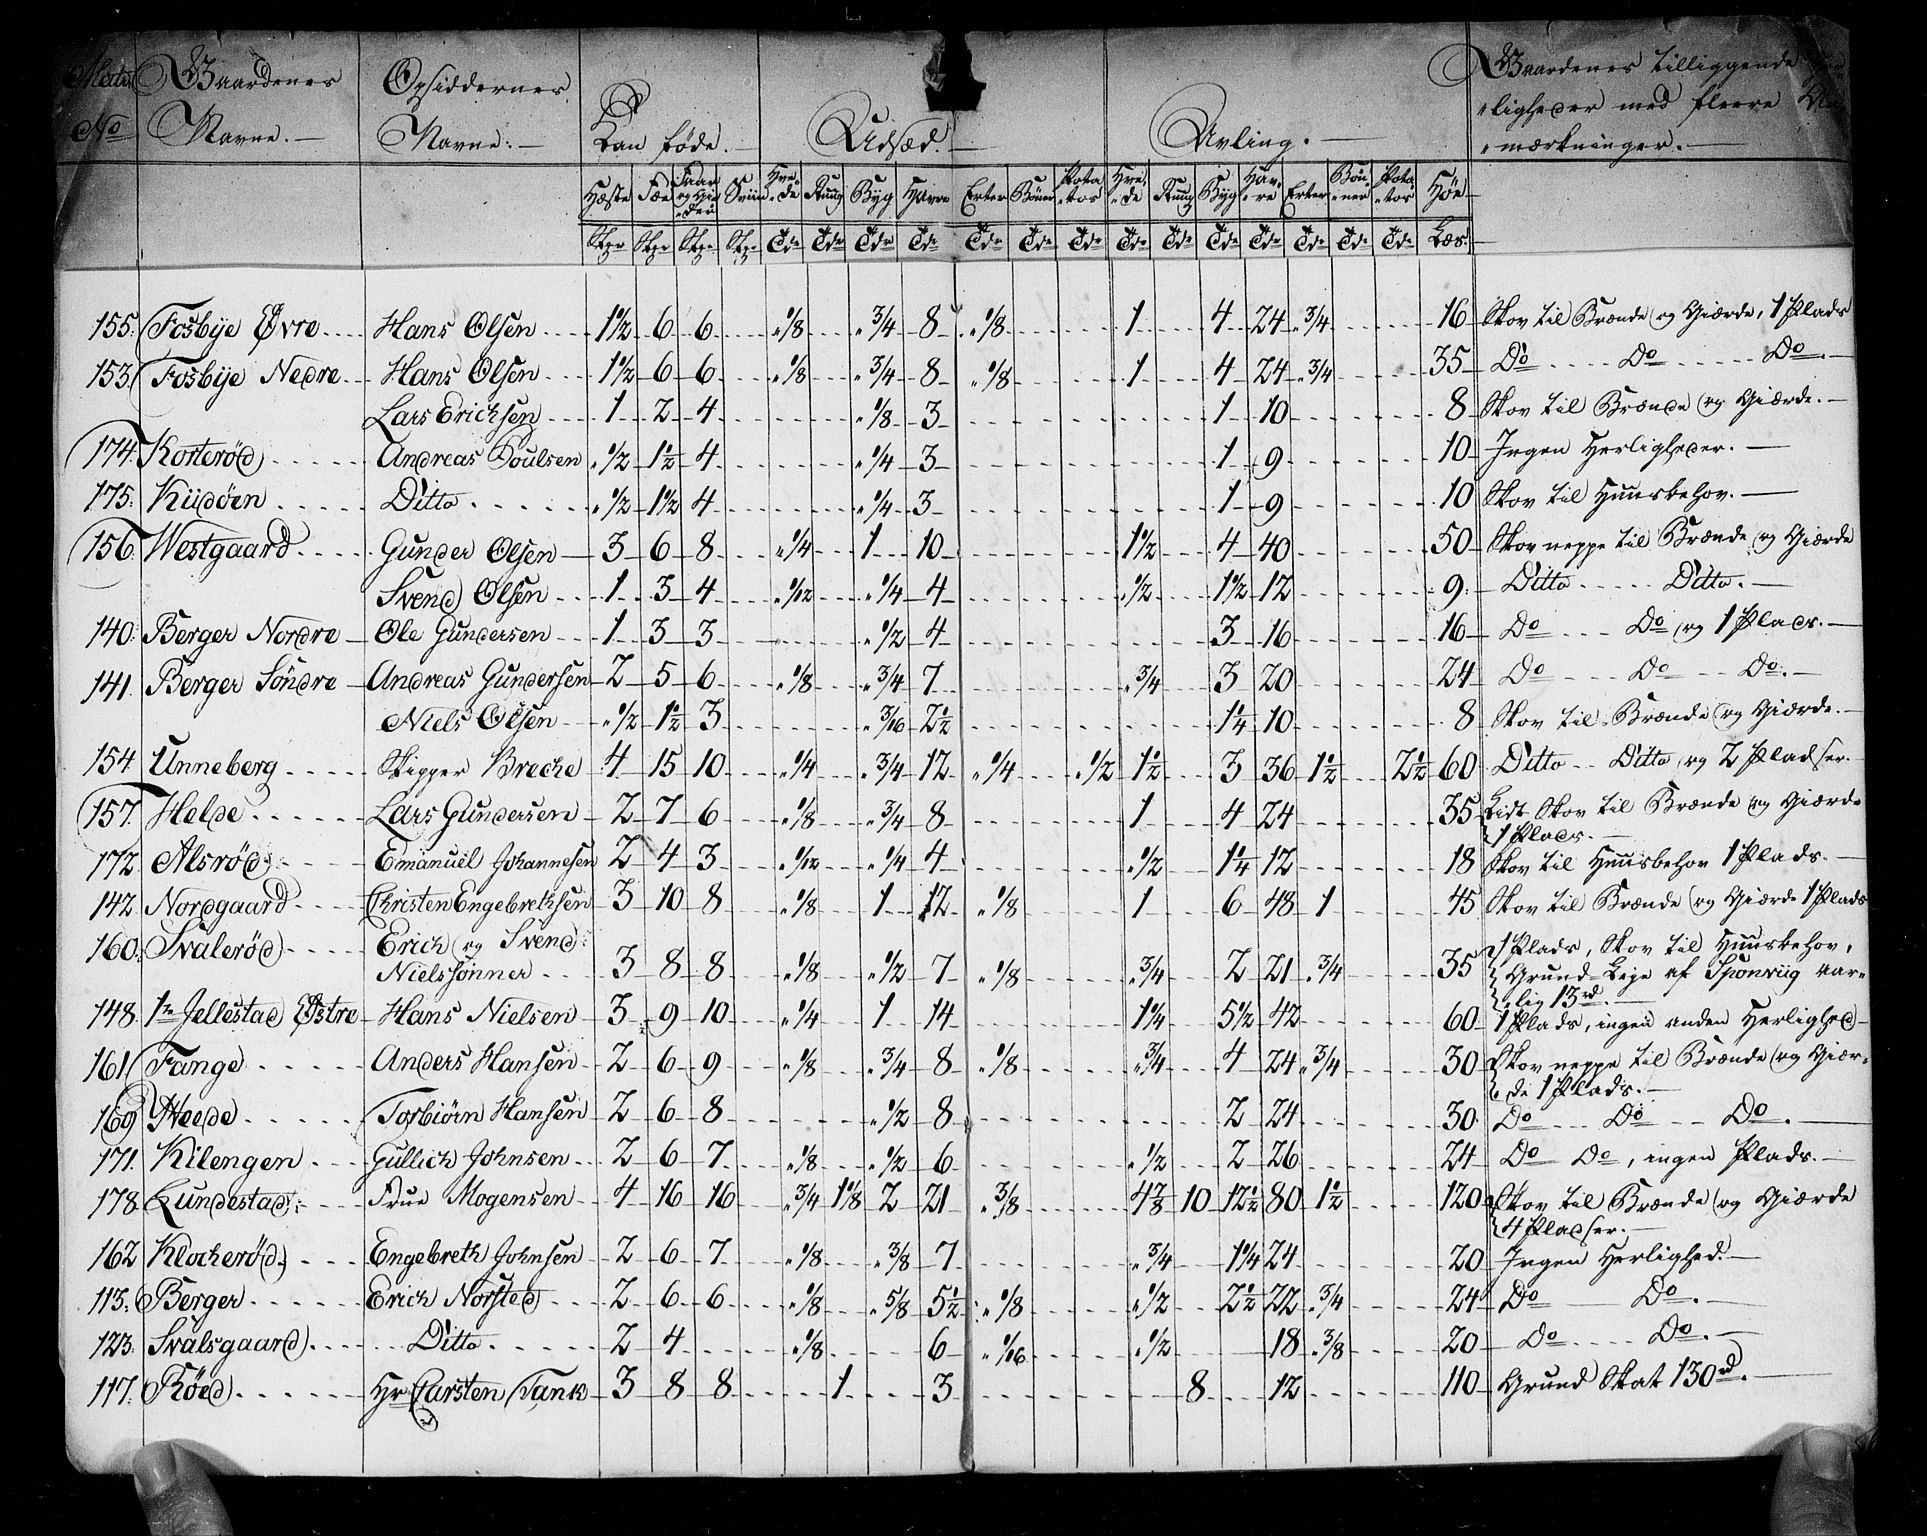 No Gaardenes Navne. Opsiddernes Navne: Kan føde. Udsæd. Avling. Gaardenes tilliggende
ligheder med fleere
mærkninger.
Heste Fæe Faar og Gieder Sviin Hvede Ruug Byg Havre Erter Bøner Potatos Hvede Ruug Byg Havre Erter Bønner Potatos Høe
Stkr Stkr Stkr Stkr Tdr Tdr Tdr Tdr Tdr Tdr Tdr Tdr Tdr Tdr Tdr Tdr Tdr Tdr Læs.
155. Fosbye Øvre Hans Olsen 1½ 6 6 „⅛ „¾ 8 „⅛ 1 4 24 „¾ 16 Skov til Brænde og Giærde, 1 Plads
153. Fosbye Nedre Hans Olsen 1½ 6 6 „⅛ „¾ 8 „⅛ 1 4 24 „¾ 35 Do Do Do.
Lars Erichsen 1 2 4 „⅛ 3 1 10 8 Skov til Brænde og Giærde.
174. Kosterød Andreas Poulsen „½ 1½ 4 „¼ 3 1 9 10 Ingen Herligheder.
175. Kiidøen Ditto „½ 1½ 4 „¼ 3 1 9 10 Skov til Huusbehov.
156. Westgaard Gunder Olsen 3 6 8 „¼ 1 10 1½ 4 40 50 Skov neppe til Brænde og Giærde
Svend Olsen 1 3 4 „1/12 „¼ 4 „½ 1½ 12 9. Ditto Ditto.
140. Berger Nordre Ole Gundersen 1 3 3 „½ 4 3 16 16 Do Do og 1 Plads.
141. Berger Søndre Andreas Gundersen 2 5 6 „⅛ „¾ 7 „¾ 3 20 24 Do Do Do.
Niels Olsen „½ 1½ 3 „3/16 2½ 1¼ 10 8 Skov til Brænde og Giærde.
154 Unneberg Skipper Breche 4 15 10 „¼ „¾ 12 „¼ „½ 1½ 3 36 1½ 2½ 60 Ditto Ditto og 2 Pladser.
157. Helde Lars Gundersen 2 7 6 „⅛ „¾ 8 1 4 24 35 Lidt Skov til Brænde og Giærde
1 Plads.
172. Alsrød Emanuel Johannesen 2 4 3 „1/12 „¼ 4 „½ 1¼ 12 18 Skov til Huusbehov 1 Plads.
142. Nordgaard Christen Engebrethsen 3 10 8 „⅛ 1 12 „⅛ 1 6 48 1 45 Skov til Brænde og Giærde 1 Plads
160. Svalerød Erich og Svend
Nielssønner 3 8 8 „⅛ „½ 7 „⅛ „¾ 2 21 „¾ 35 1 Plads, Skov til Huusbehov,
Grund-Leje af Sponviig aar-
lig 13rd.
148. 1re Jellestad Østre Hans Nielsen 3 9 10 „¼ 1 14 1¼ 5½ 42 60 1 Plads, ingen anden Herlighed
161 Tange Anders Hansen 2 6 9 „⅛ „¾ 8 „⅛ „¾ 4 24 „¾ 30 Skov neppe til Brænde og Giær-
de 1 Plads.
169 Heede Torbiørn Hansen 2 6 8 „½ 8 2 24 30. Do Do Do.
171. Kilengen Gullich Johnsen 2 6 7 „⅛ „½ 6 „½ 2 26 24 Do Do, ingen Plads.
178. Lundestad Frue Mogensen 4 16 16 „¾ 1⅛ 2 21 „⅜ 4⅞ 10 12½ 80 1½ 120 Skov til Brænde og Giærde
4 Pladser.
162 Klocherød Engebreth Johnsen 2 6 7 „⅛ „⅜ 7 „¾ 1¼ 24 20 Ingen Herlighed.
113. Berger Erich Norsted 2 6 6 „⅛ „⅝ 5½ „⅛ „½ 2½ 22 „¾ 24 Do Do.
123. Svalsgaard Ditto 2 4 „⅛ 6 „1/16 „½ 18 „⅜ 20 Do Do.
117. Røed Hr Carsten Tank 3 8 8 1 3 8 12 110 Grund Skat 130rd.